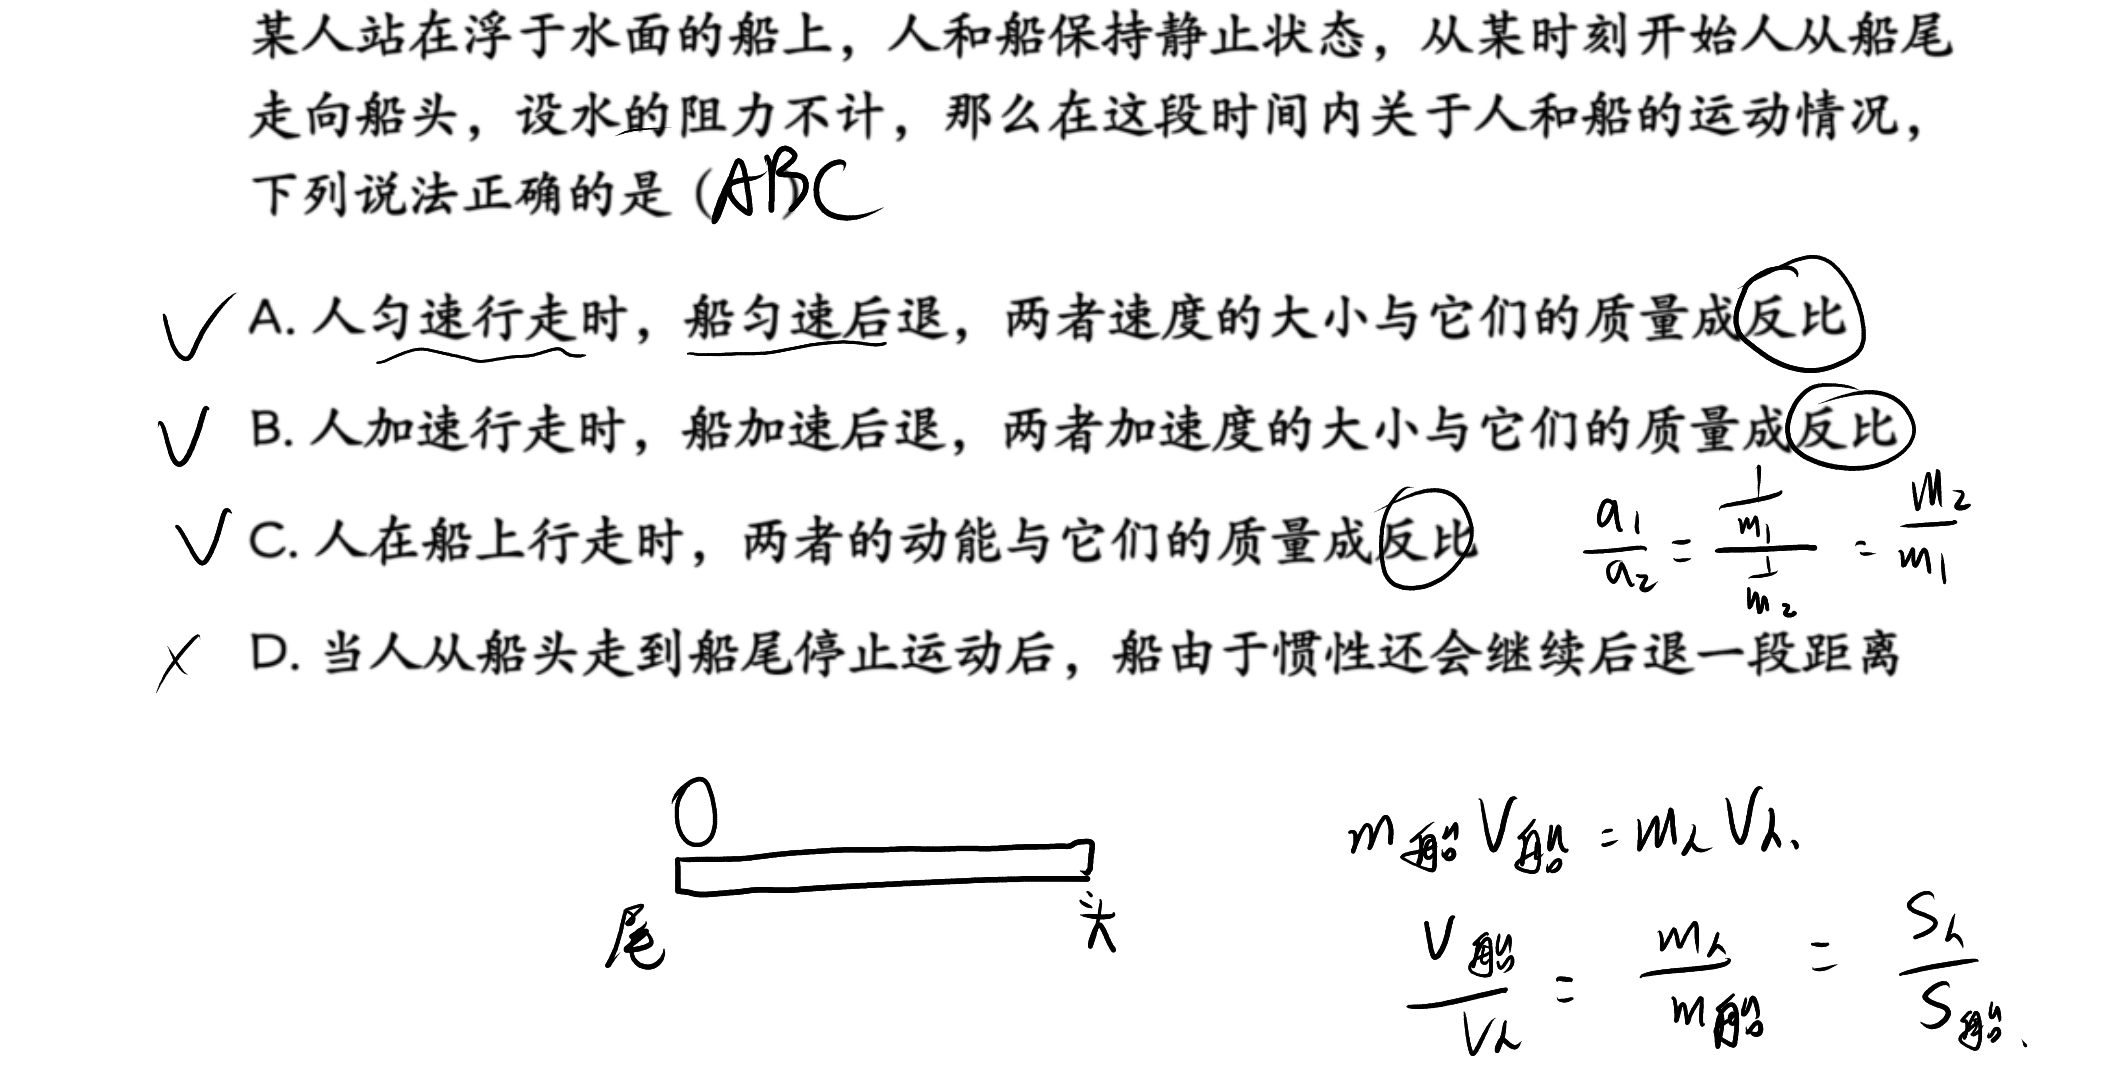 某人站在浮于水面的船上，人和船保持静止状态，从某时刻开始人从船尾
走向船头，设水的阻力不计，那么在这段时间内关于人和船的运动情况，
下列说法正确的是（ABC
A. 人匀速行走时，船匀速后退，两者速度的大小与它们的质量成反比
B. 人加速行走时，船加速后退，两者加速度的大小与它们的质量成反比
C. 人在船上行走时，两者的动能与它们的质量成反比
a₁/a₂ = (1/m₁)/(1/m₂) = m₂/m₁
D. 当人从船头走到船尾停止运动后，船由于惯性还会继续后退一段距离
尾
头
m船V船=m人V人.
V船/V人 = m人/m船 = S人/S船.